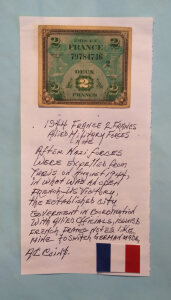 EMIS EN
FRANCE
2
79784746
2
DEUX
2
FRANCS
1944 FRANCE 2 FRANCS
Allied Military Forces
Note
AFTER NAZI FORCES
WERE EXPELLED FROM
PARIS ON AUGUST 1944,
IN WHAT WAS AN
FRENCH-US VICTORY
THE ESTABLISHED CITY
GOVERNMENT IN COORDINATION
WITH ALLIED OFFICIALS, ISSUED
FRENCH NOTES LIKE
MINE TO SWITCH GERMAN MADE
AC COINS.